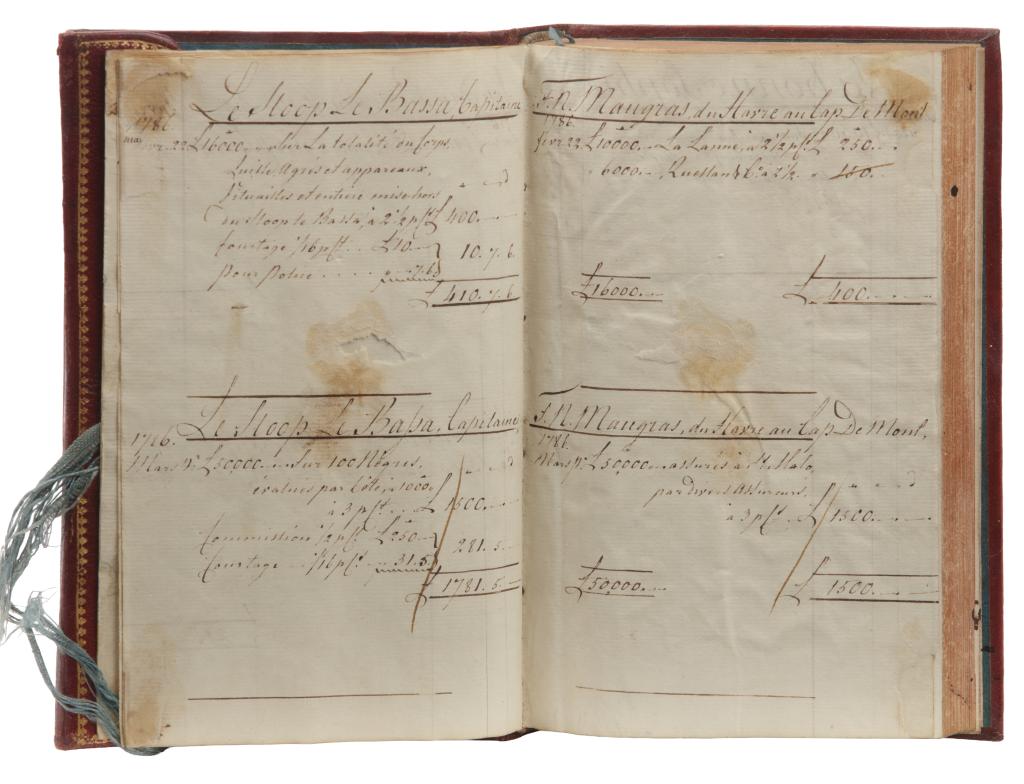 Le Sloop Le Bassa, Capitaine
1786.
22 £16000. Sur La totalité du Corps,
Quille Agrès et apparaux,
Vituailles et entière mise hors
du Sloop le Bassa, à 2½ p.Ct £ 400.
Courtage 1/16 p.Ct £10.
10. 7. 6
pour police . . . . 7. 6
£ 410. 7. 6
Le Sloop Le Bassa, Capitaine
1786.
Mars £50000. Sur 100 Nègres,
évalués par tête à 1000
à 3 p.Ct £ 1500.
Commission ½ p.Ct £250
281. 5.
Courtage 1/16 p.Ct 31. 5
£ 1781. 5.
F. N. Maugras, du Havre au Cap De Mont
1786.
févr 22 £10000. La Lanne, à 2½ p.Ct £ 250.
6000. Ruellan & C. à 2½ 150.
£16000. £ 400.
F. N. Maugras, du Havre au Cap De Mont,
1786.
Mars £50,000. assurés à St Malo,
par divers Assureurs,
à 3 p.Ct 1500.
£50,000. £ 1500.